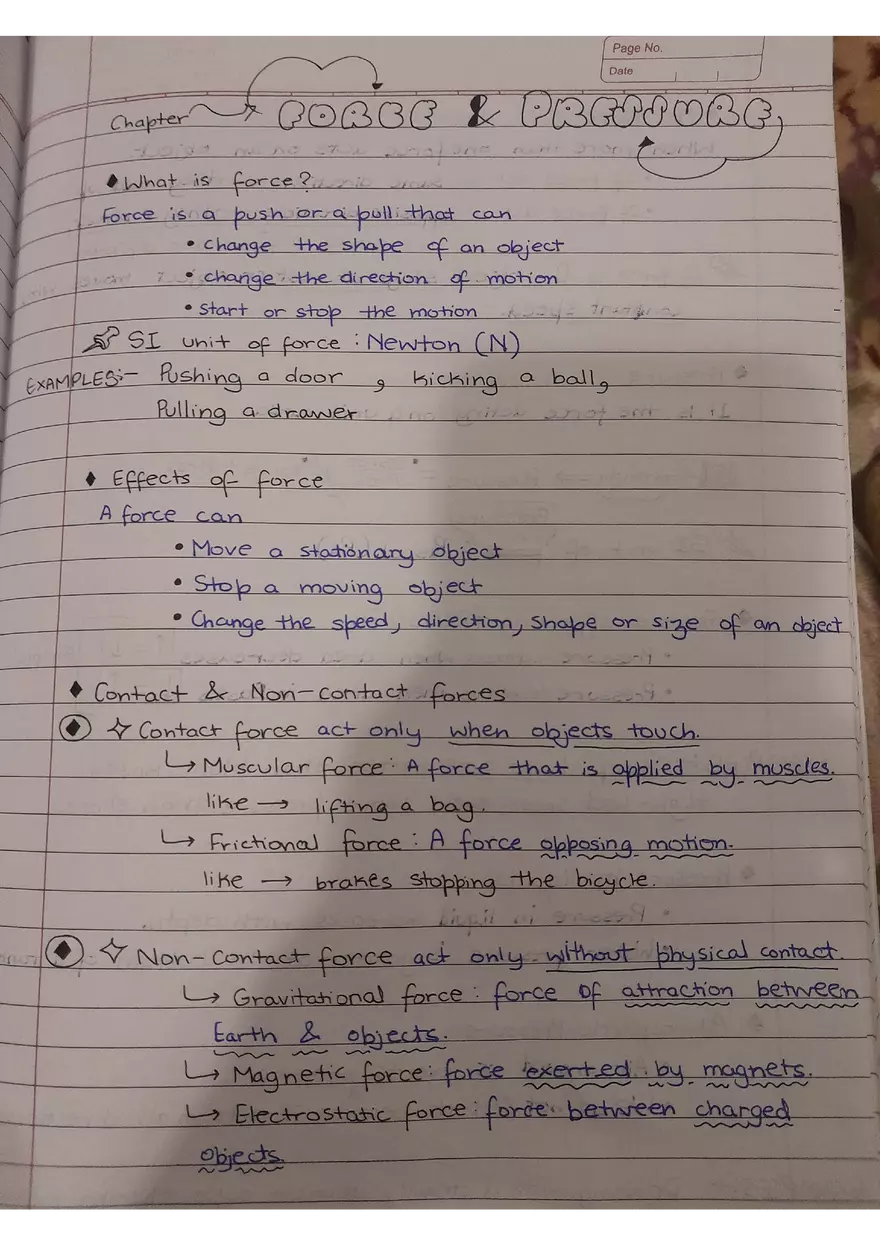 Page No.
Date
Chapter FORCE & PRESSURE
What is force?
Force is a push or a pull that can
• change the shape of an object
• change the direction of motion
• start or stop the motion
SI unit of force : Newton (N)
EXAMPLES:- Pushing a door , kicking a ball,
Pulling a drawer
♦ Effects of force
A force can
• Move a stationary object
• Stop a moving object
• Change the speed, direction, shape or size of an object
♦ Contact & Non-contact forces
♦ ✧ Contact force act only when objects touch.
↳ Muscular force : A force that is applied by muscles.
like → lifting a bag.
↳ Frictional force : A force opposing motion.
like → brakes stopping the bicycle.
♦ ✧ Non-contact force act only without physical contact.
↳ Gravitational force : force of attraction between
Earth & objects.
↳ Magnetic force : force exerted by magnets.
↳ Electrostatic force : force between charged
objects.